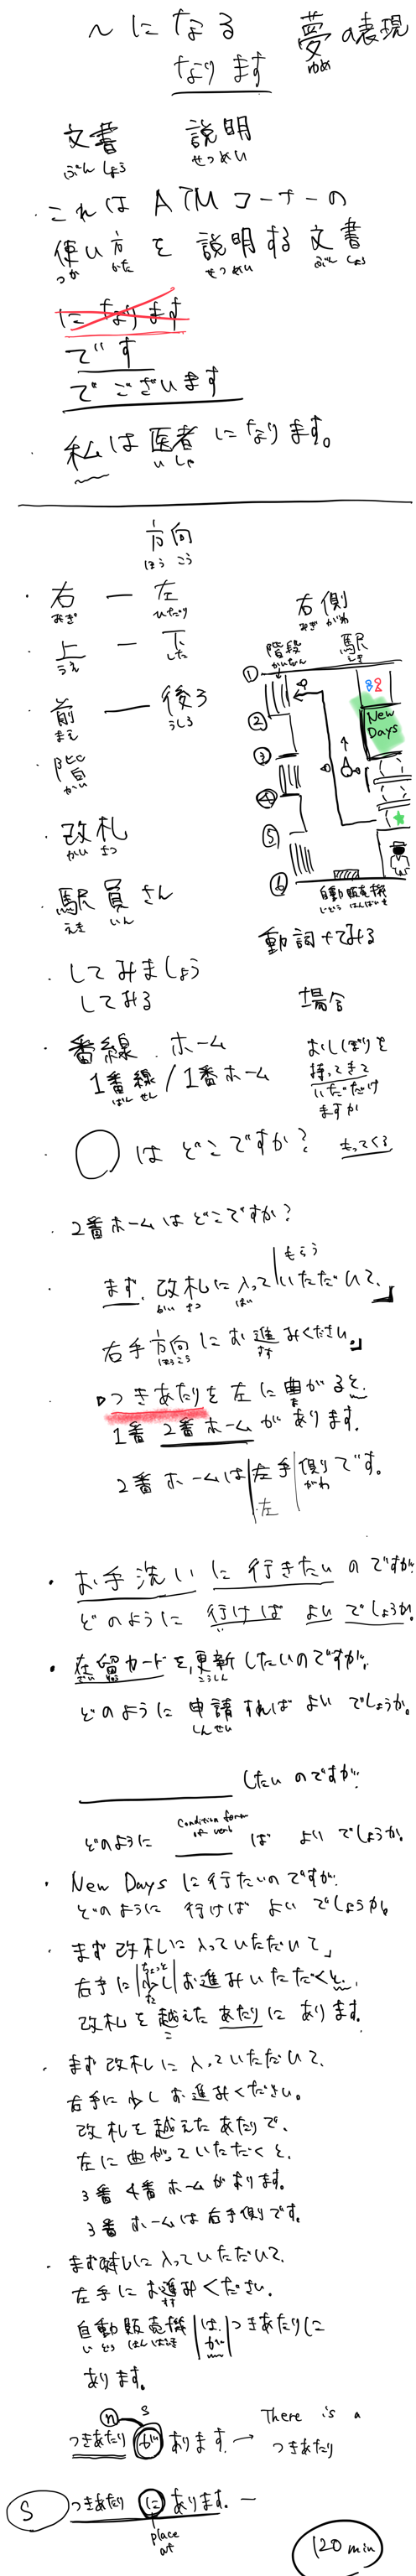 ～になる 夢の表現
なります ゆめ
文書 説明
ぶんしょう せつめい
・これは ATMコーナーの
使い方を説明する文書
つか かた せつめい ぶんしょう
になります
です
でございます
・私は医者になります。
いしゃ
方向
ほうこう
・右 ー 左
みぎ ひだり
上 ー 下
うえ した
前 ー 後ろ
まえ うしろ
階
かい
右側 駅
みぎがわ えき
階段
かいだん
①
②
③
④
⑤
⑥
New
Days
自動販売機
じどうはんばいき
・改札
かいさつ
・駅員さん
えきいん
動詞+てみる
・してみましょう
してみる
場合
・番線 ホーム
1番線/1番ホーム
ばんせん
おしぼりを
持ってきて
いただけ
ますか
もってくる
・◯はどこですか?
・2番ホームはどこですか?
もらう
・まず、改札に入っていただいて、」
かいさつ はい
右手方向にお進みください。」
ほうこう すす
つきあたりを左に曲がると、
ま
1番 2番ホームがあります。
2番ホームは|左手|側です。
左 がわ
・お手洗いに行きたいのですが、
どのように行けばよいでしょうか。
・在留カードを更新したいのですが、
ざいりゅう こうしん
どのように申請すればよいでしょうか。
しんせい
したいのですが、
Condition form
of verb
どのように ば よいでしょうか。
・New Days に行たいのですが、
どのように 行けば よいでしょうか。
・まず改札に入っていただいて」
ちょっと
右手に|少し|お進みいただくと、
すこ
改札を越えたあたりにあります。
こ
・まず改札に入っていただいて、
右手に少しお進みください。
改札を越えたあたりで、
左に曲がっていただくと、
3番 4番ホームがあります。
3番ホームは右手側です。
・まず改札に入っていただいて、
左手にお進みください。
すす
自動販売機|は|つきあたりに
じどうはんばいき が
あります。
n S
つきあたり が あります。→ There is a
つきあたり
S つきあたり に あります。ー
place
at
120 min